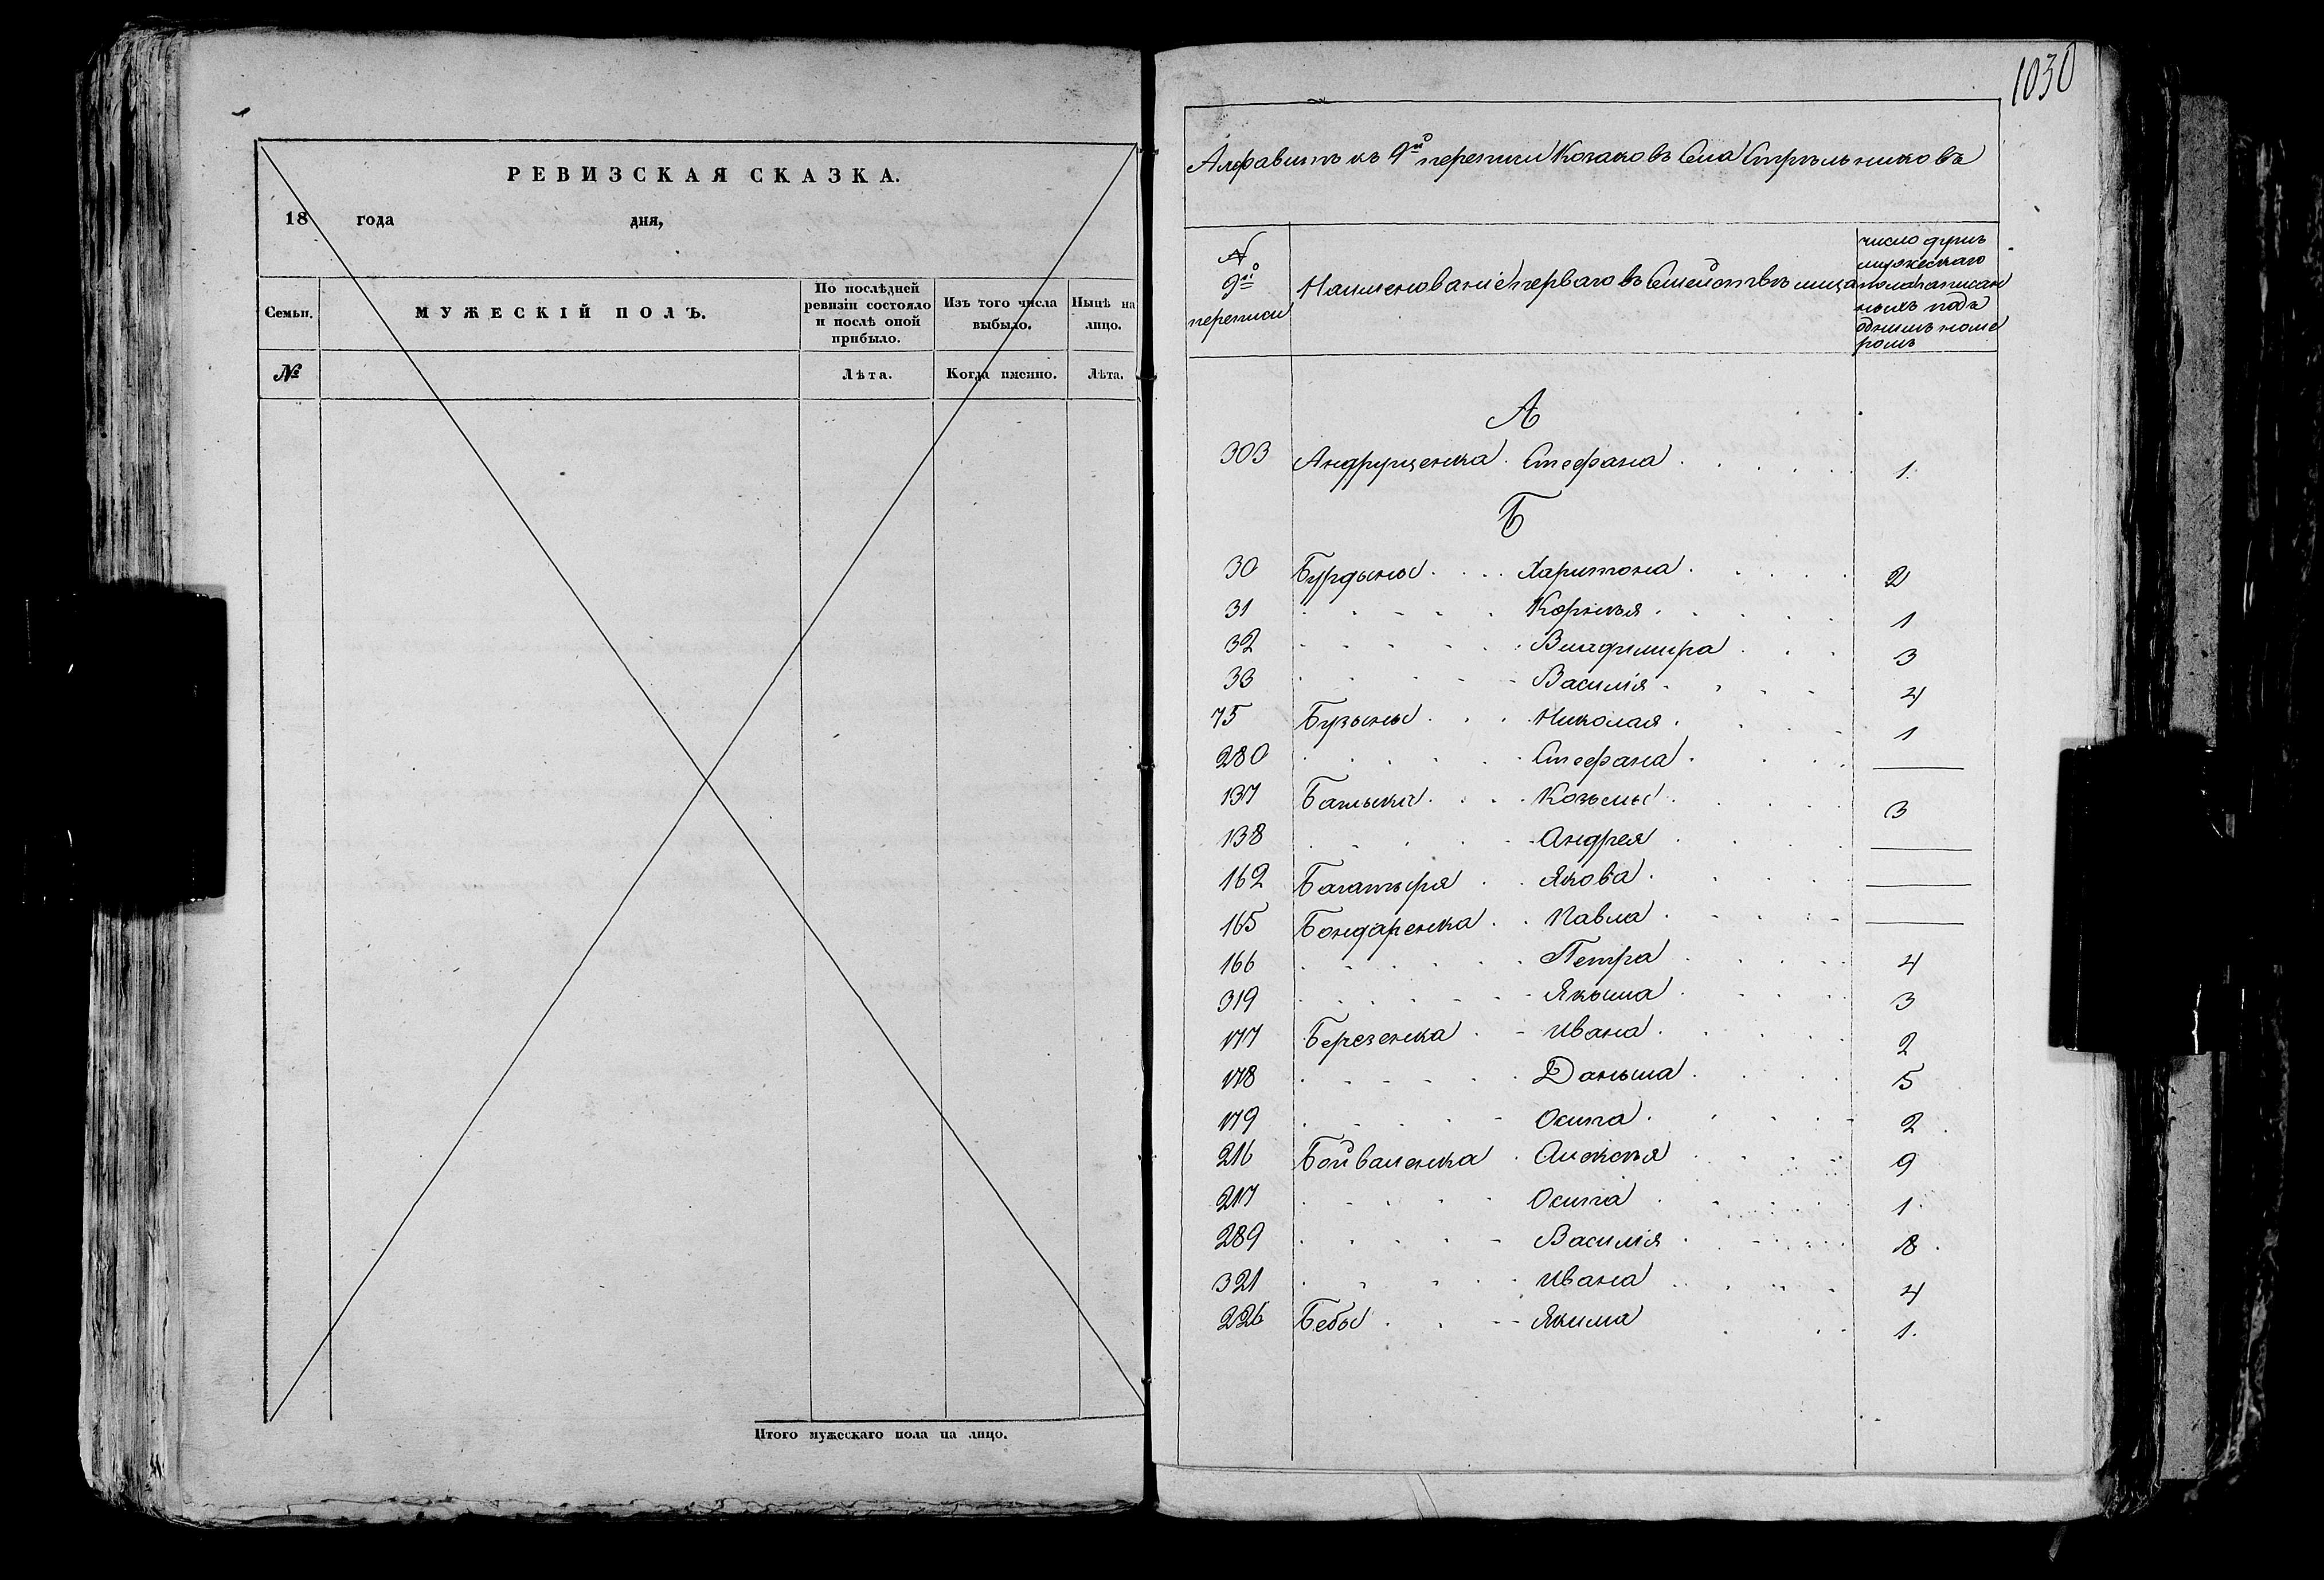 РЕВИЗСКАЯ СКАЗКА.
18 года дня,
Семьи. МУЖЕСКІЙ ПОЛЪ. По послѣдней ревизіи состояло и послѣ оной прибыло. Изъ того числа выбыло. Нынѣ на лицо.
№ Лѣта. Когда именно. Лѣта.
Итого мужескаго пола на лицо.
1030
Алфавитъ къ 9й переписи Козаковъ Села Стрѣльниковъ
№ 9й переписи
Наименованіе перваго въ Семействѣ лица
число душъ
мужескаго
пола написан
ныхъ подъ
однимъ номе
ромъ
А
303 Андрущенка Стефана 1.
Б
30 Бурдыны Харитона 2
31 Корнѣя 1
32 Владимира 3
33 Василія 4
75 Бузыны Николая 1
280 Стефана —
137 Батыки Козьмы 3
138 Андрея —
162 Багатыря Якова —
165 Бондаренка Павла —
166 Петра 4
319 Якыма 3
177 Березенка Ивана 2
178 Даныла 5
179 Осипа 2
216 Бойваленка Алексѣя 9
217 Осипа 1
289 Василія 8
321 Ивана 4
226 Бебы Якима 1.